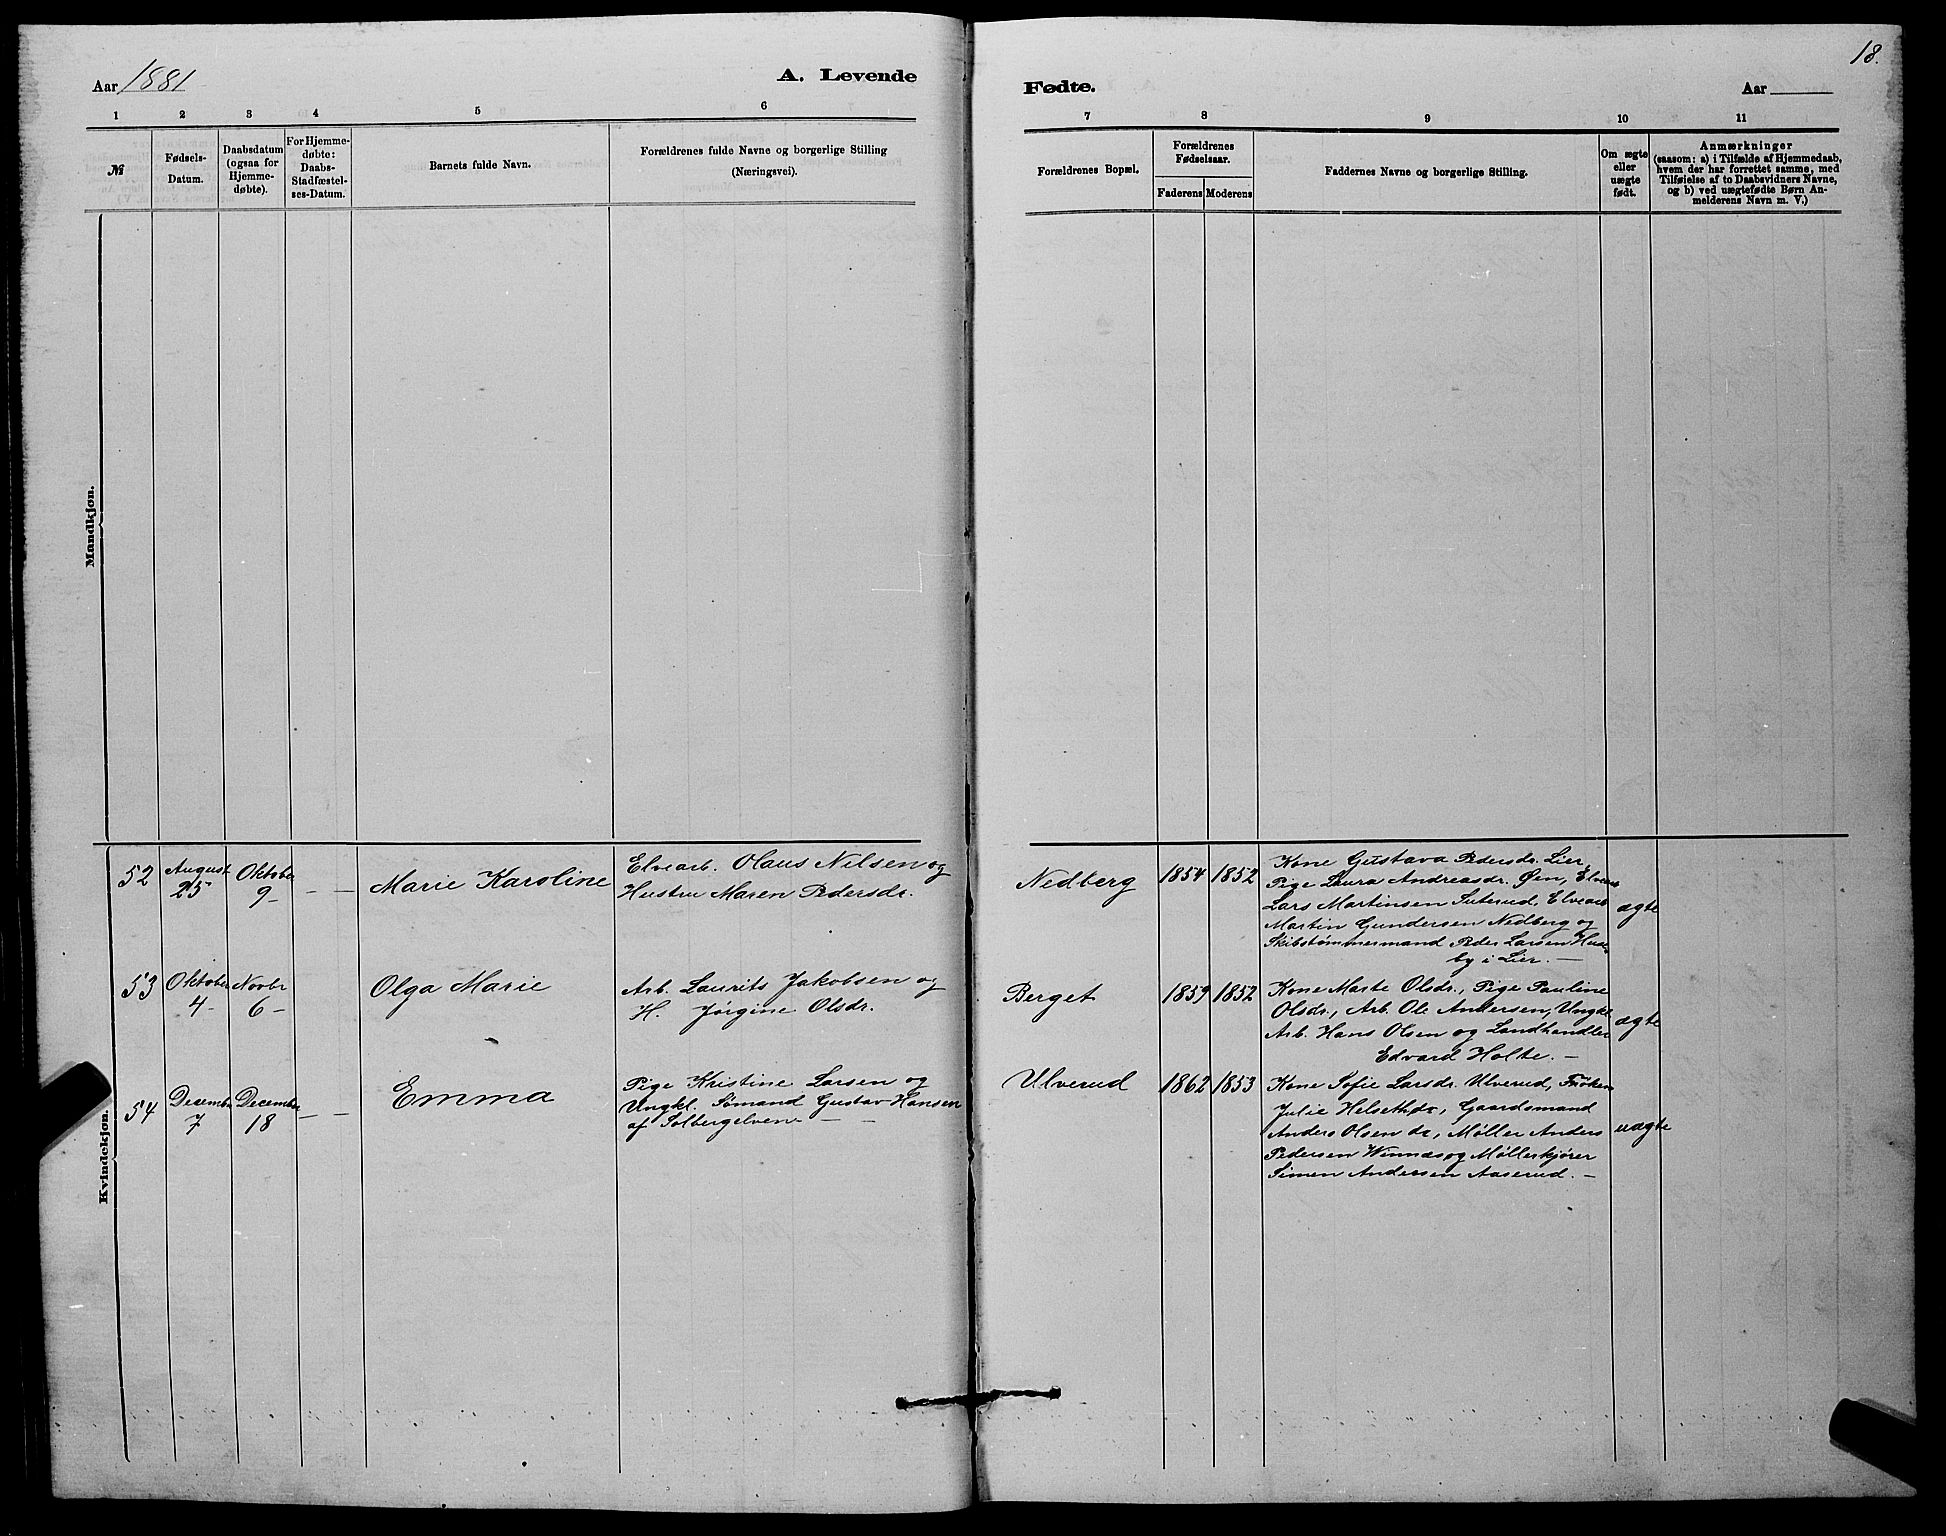 18.
Aar 1881
A. Levende
Fødte.
Aar
1 2 3 4 5 6
7 8 9 10 11
№
Fødsels-
Datum.
Daabsdatum
(ogsaa for
Hjemme-
døbte).
For Hjemme-
døbte:
Daabs-
Stadfæstel-
ses-Datum.
Barnets fulde Navn.
Forældrenes fulde Navne og borgerlige Stilling
(Næringsvei).
Forældrenes Bopæl.
Forældrenes
Fødselsaar.
Faderens Moderens
Faddernes Navne og borgerlige Stilling.
Om ægte
eller
uægte
født.
Anmærkninger
(saasom: a) i Tilfælde af Hjemmedaab,
hvem der har forrettet samme, med
Tilføielse af to Daabsvidners Navne,
og b) ved uægtefødte Børn An-
melderens Navn m. V.)
Mandkjøn.
Kvindekjøn.
52
August
25
Oktober
9
Marie Karoline
Elvearb. Olaus Nilsen og
Hustru Maren Pedersdr.
Nedberg
1854 1852
Kone Gustava Pedersdr. Lier,
Pige Laura Andreasdr. Øen, Elvearb
Lars Martinsen Suterud, Elvearb
Martin Gundersen Nedberg og
Skibstømmermand Peder Larsen Hus
by i Lier.
ægte
53
Oktober
4
Novbr
6
Olga Marie
Arb. Laurits Jakobsen og
H. Jørgine Olsdr.
Berget
1859 1852
Kone Marte Olsdr., Pige Pauline
Olsdr., Arb. Ole Andersen, Ungkl.
Arb. Hans Olsen og Landhandler
Edvard Holte.
ægte
54
December
7
December
18
Emma
Pige Kristine Larsen og
Ungkl. Sømand Gustav Hansen
af Solbergelven
Ulverud
1862 1853
Kone Sofie Larsdr. Ulverud, Frøken
Julie Helseth, do, Gaardsmand
Anders Olsen do, Møller Anders
Pedersen Winnæs og Møllerkjører
Simen Andersen Aaserud.
uægte